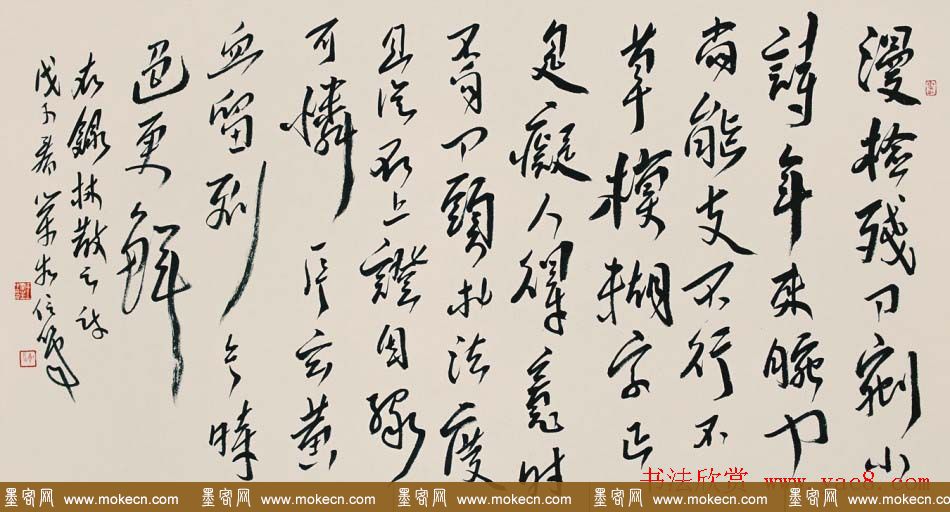 漫捡殘刀刻小
詩年來腕力
尚能支不行不
草模糊字正
是癡人得意時
刀頭法度
且從石上證因緣
可憐一片玄黃
血留到今
更鮮
右錄林散之詩
戊子春
书法欣赏 www.yac8.com
墨客网 www.mokecn.com 墨客网 www.mokecn.com 墨客网 www.mokecn.com 墨客网 www.mokecn.com 墨客网 www.mokecn.com